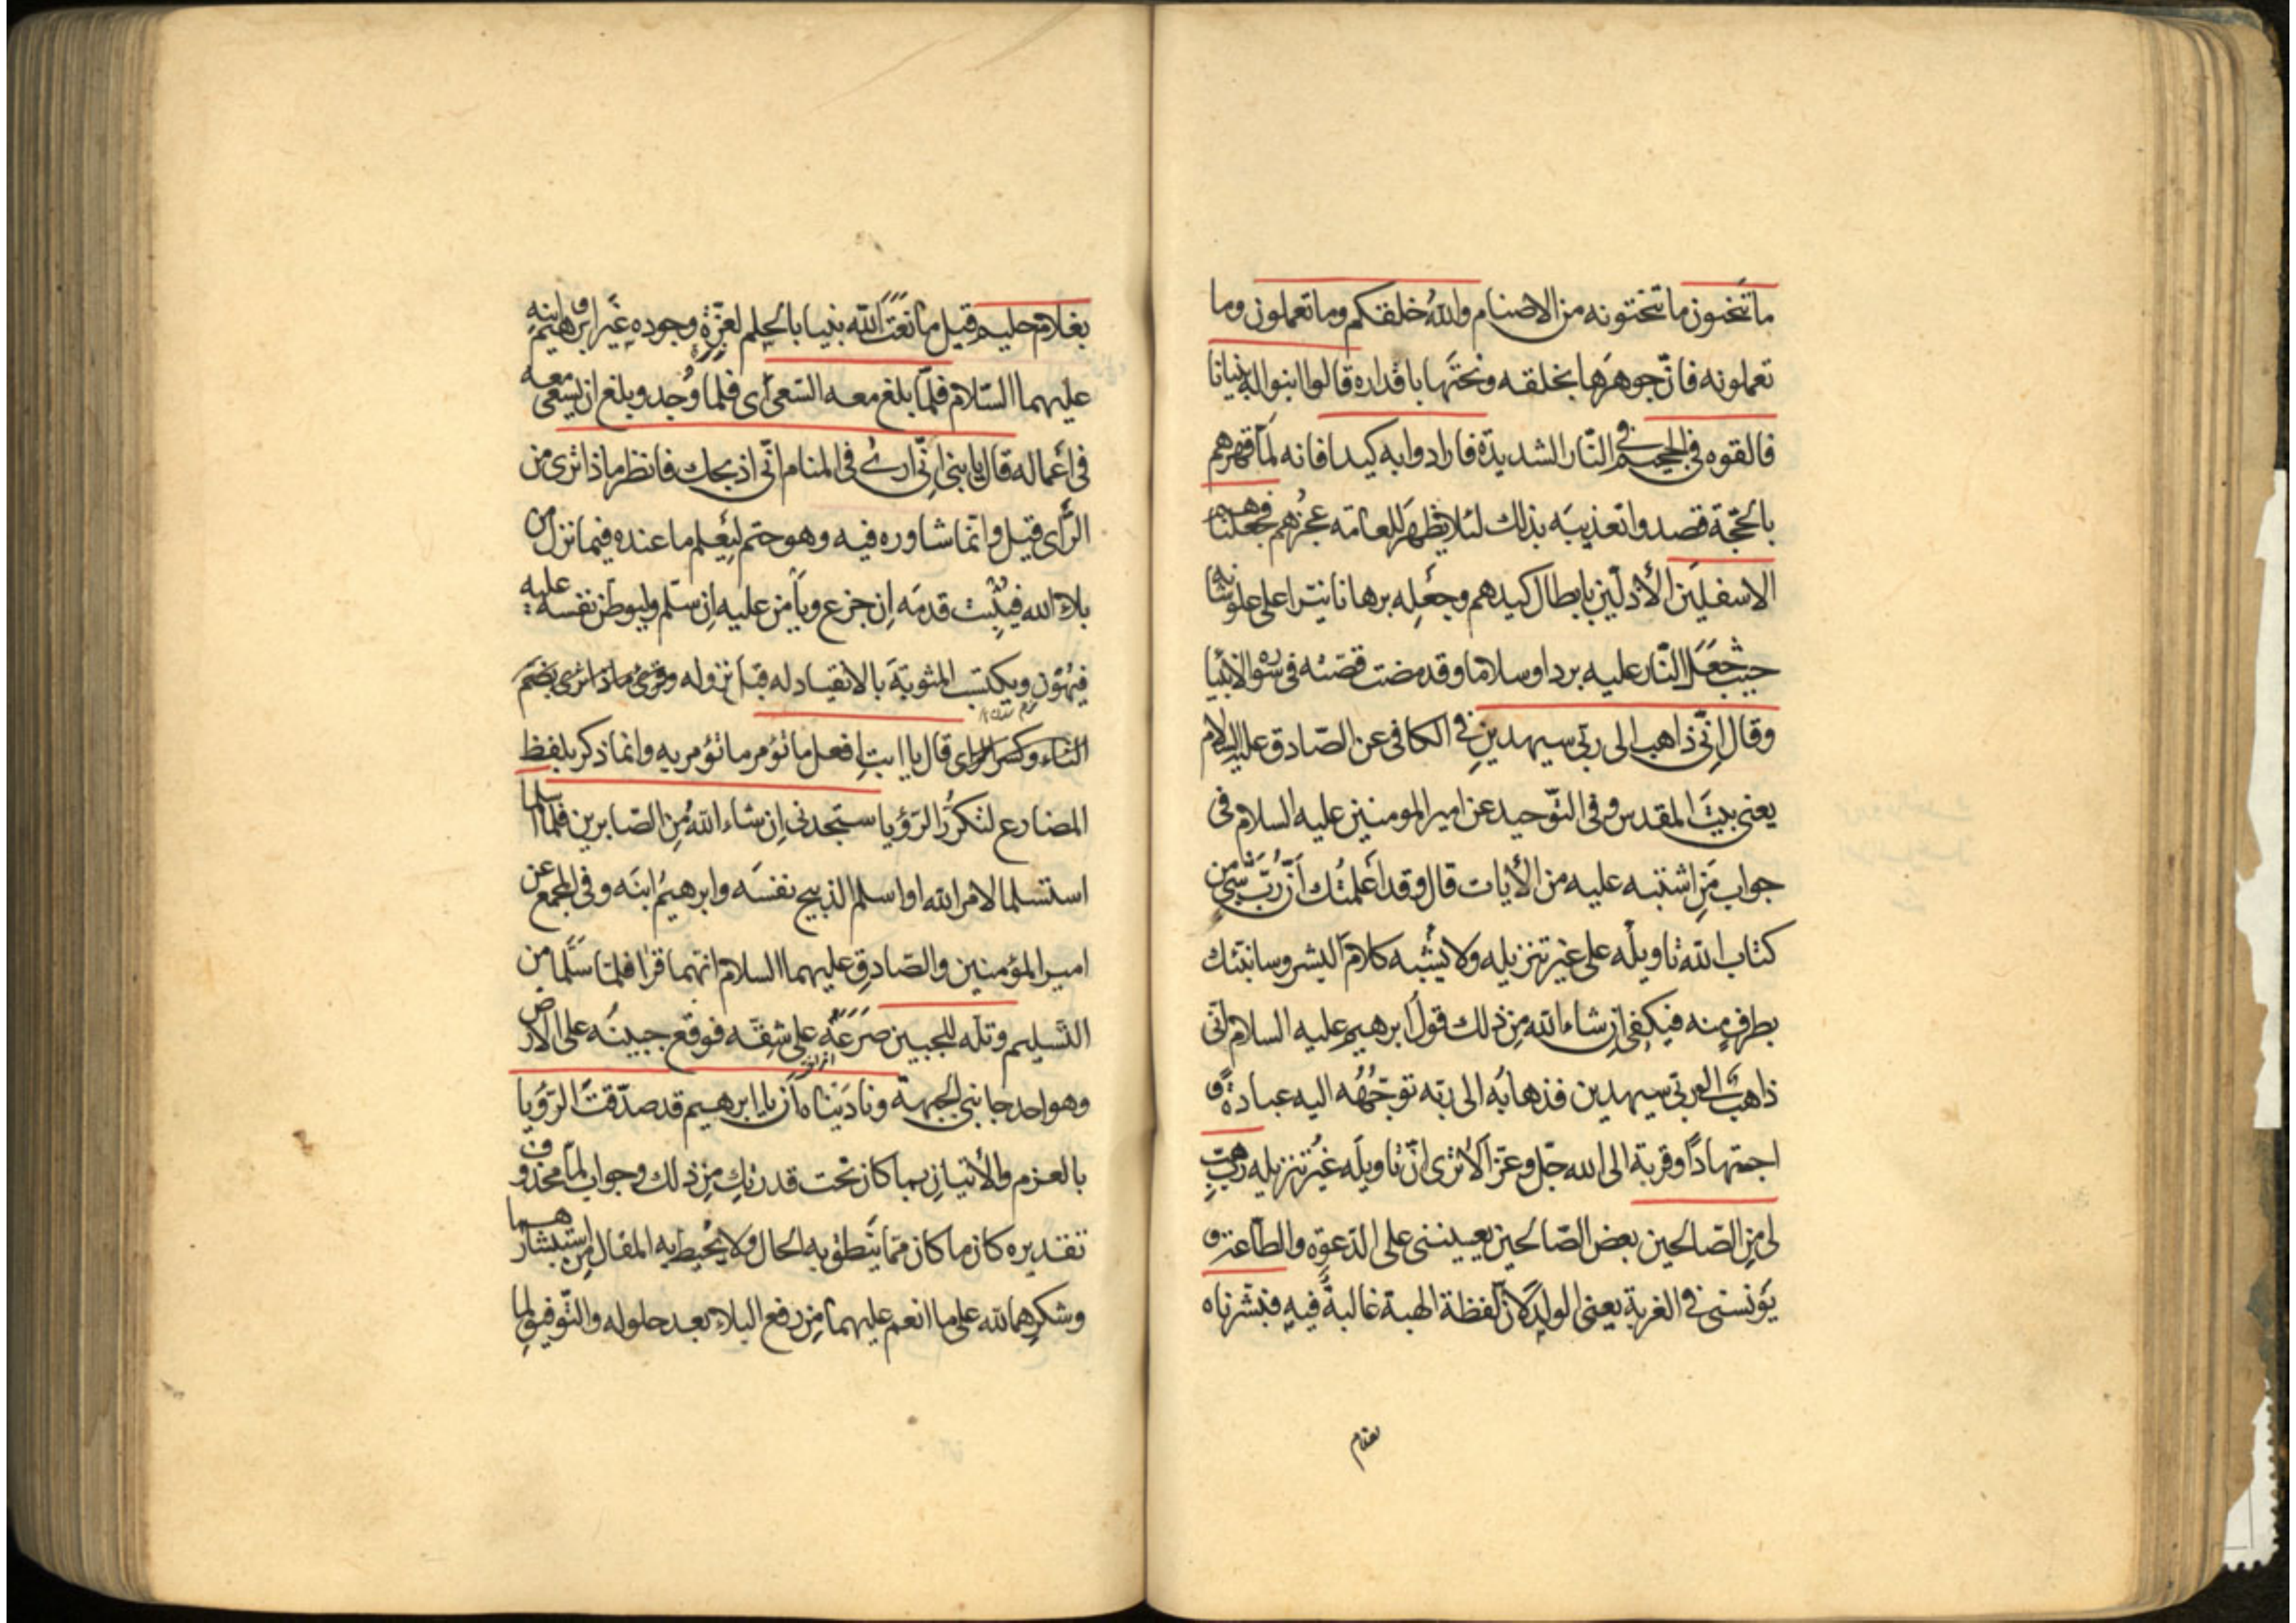 ما تنحتون ما تنحتونه من الاصنام والله خلقكم وما تعملون وما
تعملونه فانّ جوهرَها بخلقه ونحتَها باقداره قالوا ابنوا له بنيانا
فالقوه فى الجحيم فى النّار الشديدة فارادوا به كيدا فانه لَمّا قهرهم
بالحُجّة قصدوا تعذيبَه بذلك لئلا يظهرَ للعامّه عجزُهم فجعلناهم
الاسفلِين الأذلّين بابطال كيدهم وجَعْلِه برهانا نيّرا على علوّ شانه
حيث جَعَلَ النّار عليه بردا وسلاما وقد مضت قصّته فى سورة الأنبيا
وقال اِنّى ذاهب الى ربّى سيهدينِ فى الكافى عن الصّادق عليه السلام
يعنى بيتَ المقدس وفى التّوحيد عن امير المومنين عليه السلام فى
جواب مَنِ اشتبه عليه من الأيات قال وقد أعلمتُك أنّ رُبّ شىءٍ من
كتاب الله تاويلُه على غير تنزيله ولا يشبه كلامَ البشر وسانبّئك
بطرفٍ منه فيكفى اِن شاء الله مِن ذلك قولُ ابرهيم عليه السلام انّى
ذاهبٌ الى ربّى سيهدين فذهابُه الى ربّه توجّهُه اليه عبادةً و
اجتهادًا وقربة الى الله جلّ وعزّ ألا ترى انّ تاويلَه غيرُ تنزيله ربّ هب
لى مِن الصّالحين بعضَ الصّالحين يعيننى على الدّعوة والطّاعة و
يؤنسنى فى الغربة يعنى الولد لانّ لفظة الهبة غالبةٌ فيه فبشّرناه
بغلام
بغلام حليم قيل ما نعتَ اللّه نبيا بالحِلم لعزّة وجوده غيرَ ابرهيم وابنه
عليهما السّلام فلمّا بلغ معه السّعى أى فلمّا وُجد وبلغ ان يسعى معه
فى أعماله قال يا بنىّ اِنّى ارى فى المنام انّى اذبحك فانظر ماذا ترى من
الرّأى قيل وانّما شاوره فيه وهو حتم ليعلم ما عنده فيما نزل من
بلاء الله فيثبّت قدمَه اِن جزع ويأمن عليه اِن سلّم وليوطّن نفسه عليه
فيهون ويكتسب المثوبةَ بالانقياد له قبل نزوله وقرئ ماذا ترى بضمّ
التاء وكسر الراى قال يا ابتِ افعل ما تؤمر ما تؤمر به وانما ذكر بلفظ
المضارع لتكرُّر الرّؤيا ستجدنى اِن شاء اللهُ مِن الصّابرين فلما اسلما
استسلما لامر الله او اسلم الذبيح نفسَه وابرهيمُ ابنَه وفى المجمع عن
امير المؤمنين والصّادقِ عليهما السلام انّهما قرٰا فلمّا سَلَّما من
التّسليم وتلّه للجبين صَرَعَهُ على شِقّه فوقع جبينُه على الارض
وهو احد جانبى الجبهة وناديناه أن يا ابرهيم قد صدّقتَ الرّؤيا
بالعزم والأتيان بما كان تحت قدرتك مِن ذلك وجواب لَمّا محذوف
تقديره كان ما كان ممّا يَنطِقُ به الحال ولا يُحيط به المقال مِن استبشارهما
وشكرِهما لله على ما انعم عليهما مِن رفع البلاء بعد حلوله والتّوفيق لما